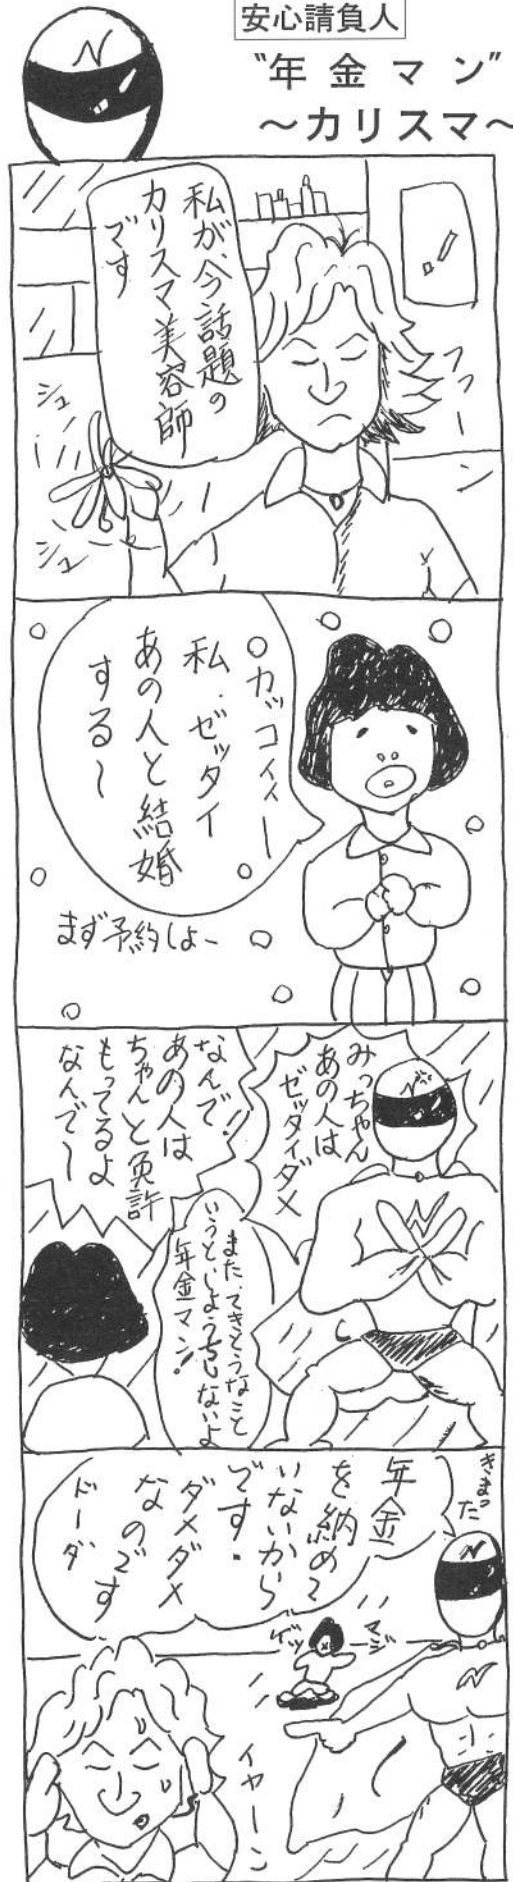 安心請負人
“年金マン”
～カリスマ～
N
私が、今話題の
カリスマ美容師
です
フフーン
シュ
シュ
カッコイイー
私、ゼッタイ
あの人と結婚
する～
まず予約しよー
みっちゃん
あの人は
ゼッタイダメ
なんで!!
あの人は
ちゃんと免許
もってるよ
なんで～
また、てきとうなこと
いうと
年金マン!
N
N
きまった
年金
を納めて
いないから
です。
ダメダメ
なのです
ドーダ
マジ
ゲッ
イヤーン
N
N